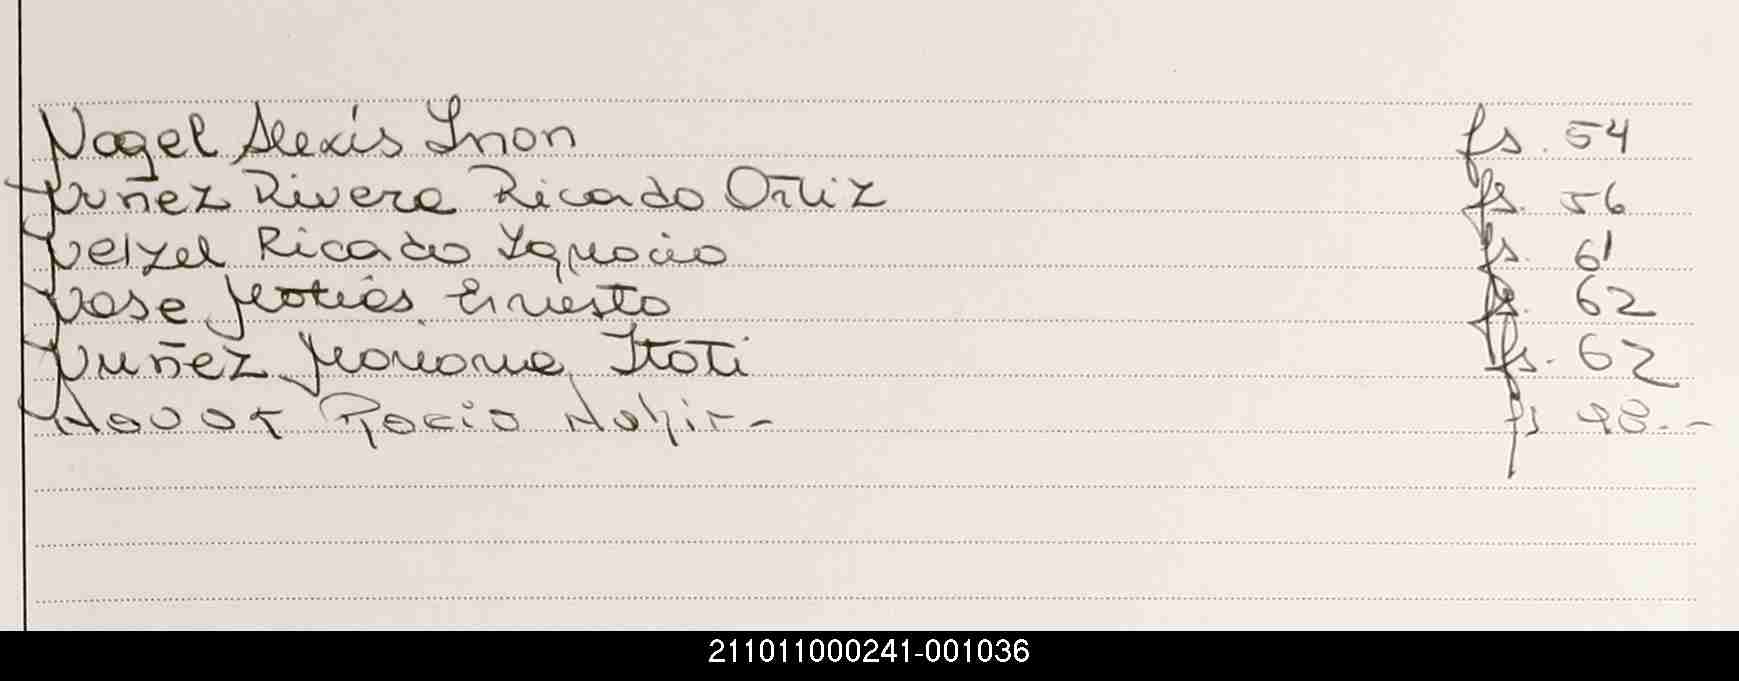 Nagel Alexis Inon fs. 54
Nuñez Rivera Ricardo Ortiz fs. 56
Nelzel Ricardo Ignacio fs. 61
Nase Matias Ernesto fs. 62
Nuñez Mariana Itati fs. 62
Rocio Nahir- fs 98.-
211011000241-001036